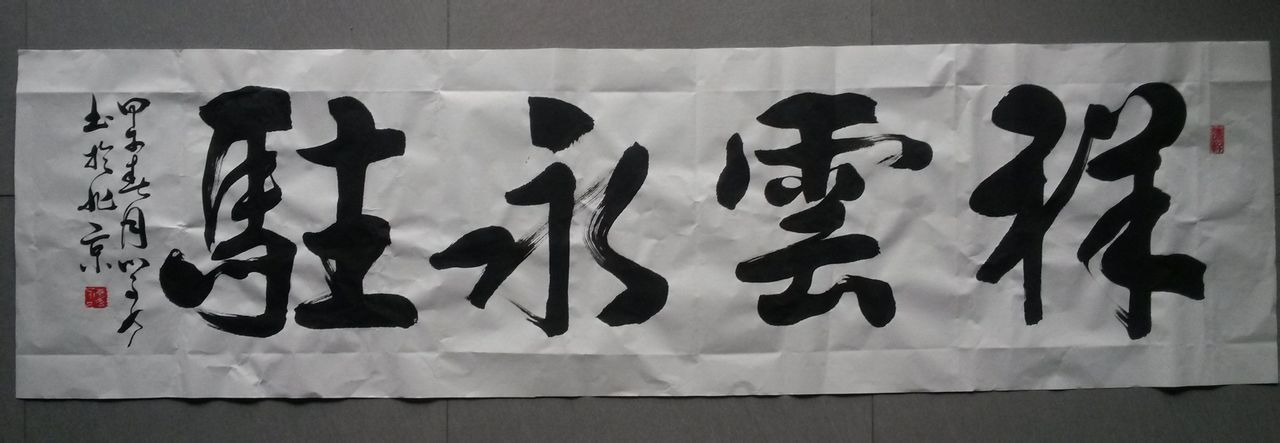 祥雲永駐
甲午春月
書於北京